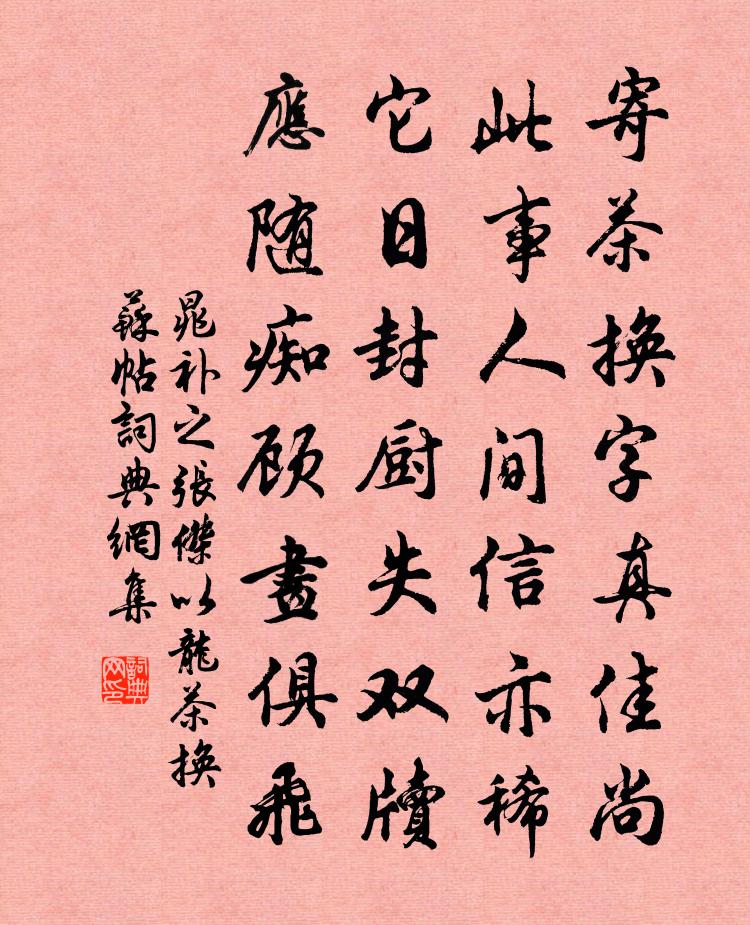 寄茶换字真佳尚
此事人间信亦稀
它日封厨失双牍
應随痴顾畫俱飛
晁补之張傑以龍茶换
蘇帖詞典網集
詞典网印